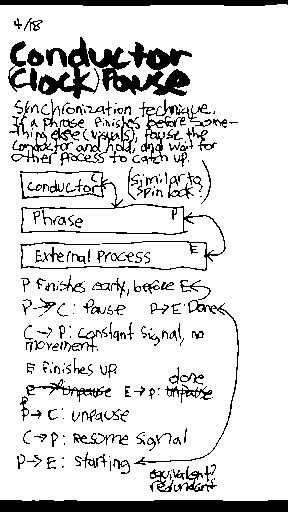 4/18
Conductor
(Clock) Pause
Synchronization technique.
If a phrase finishes before some-
-thing else (visuals), pause the
conductor and hold, and wait for
other process to catch up.
conductor C (similar to
spin lock?)
Phrase P
External Process E
P finishes early, before E
P → C: Pause P → E: Done
C → P: constant signal, no
movement.
E finishes up
done
E → P: unpause E → P: unpause
P → C: unpause
C → P: Resume signal
P → E: starting
equivalent?
redundant